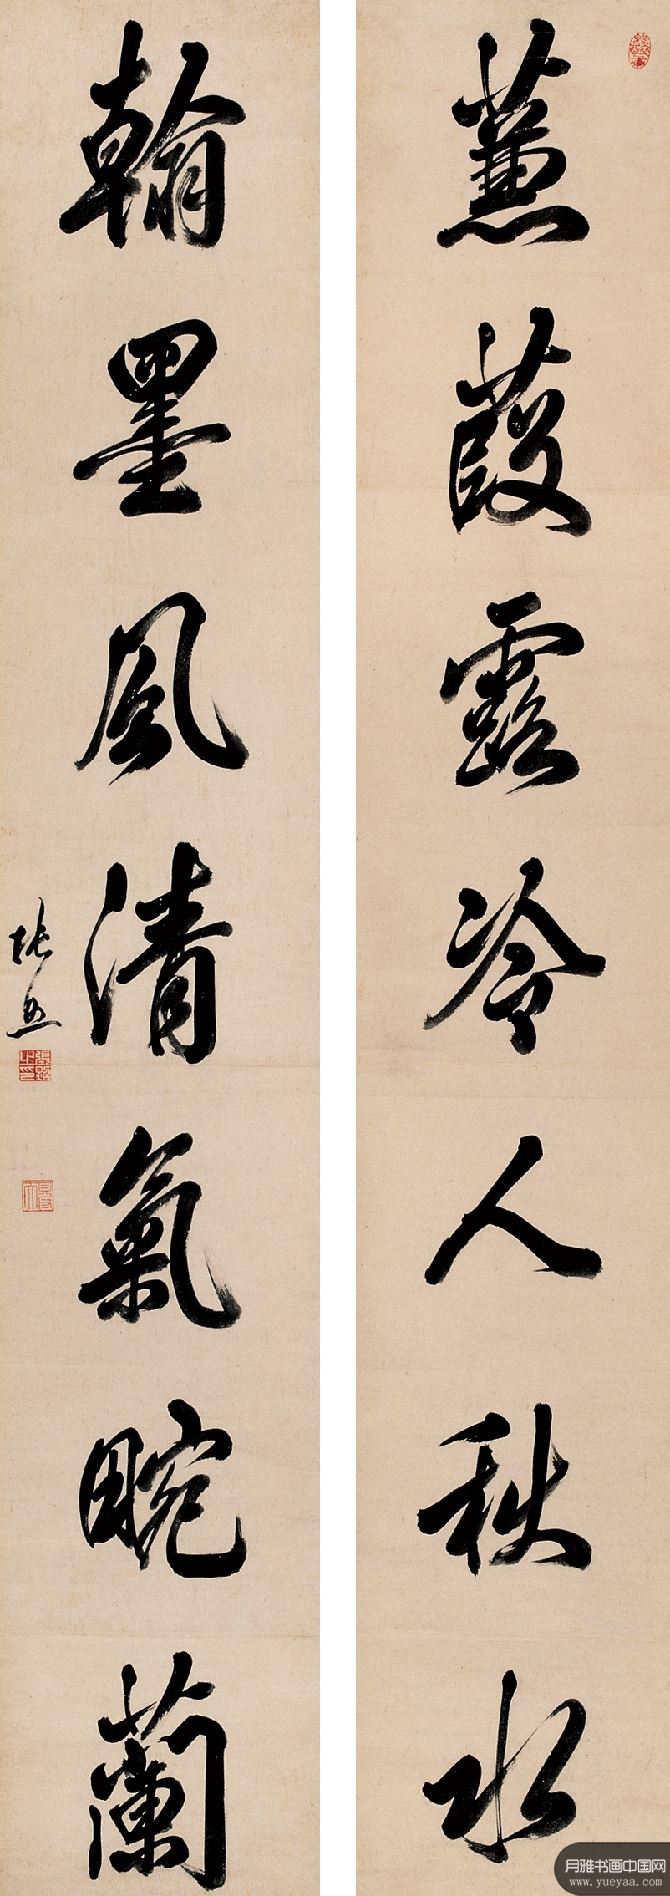 蒹葭露冷人秋水
翰墨風清氣畹蘭
張照
張照之印
月雅书画中国网
www.yueyaa.com